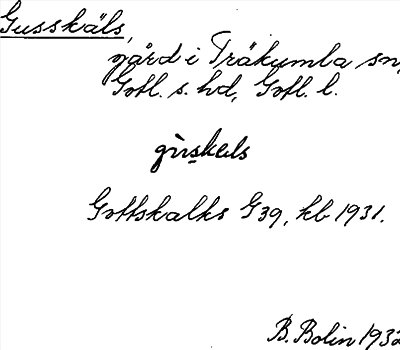 Gusskäls,
gård i Träkumla sn,
Gotl. s. hd, Gotl. l.
gùskäls
Gottskalks G 39, kb 1931.
B. Bolin 1932